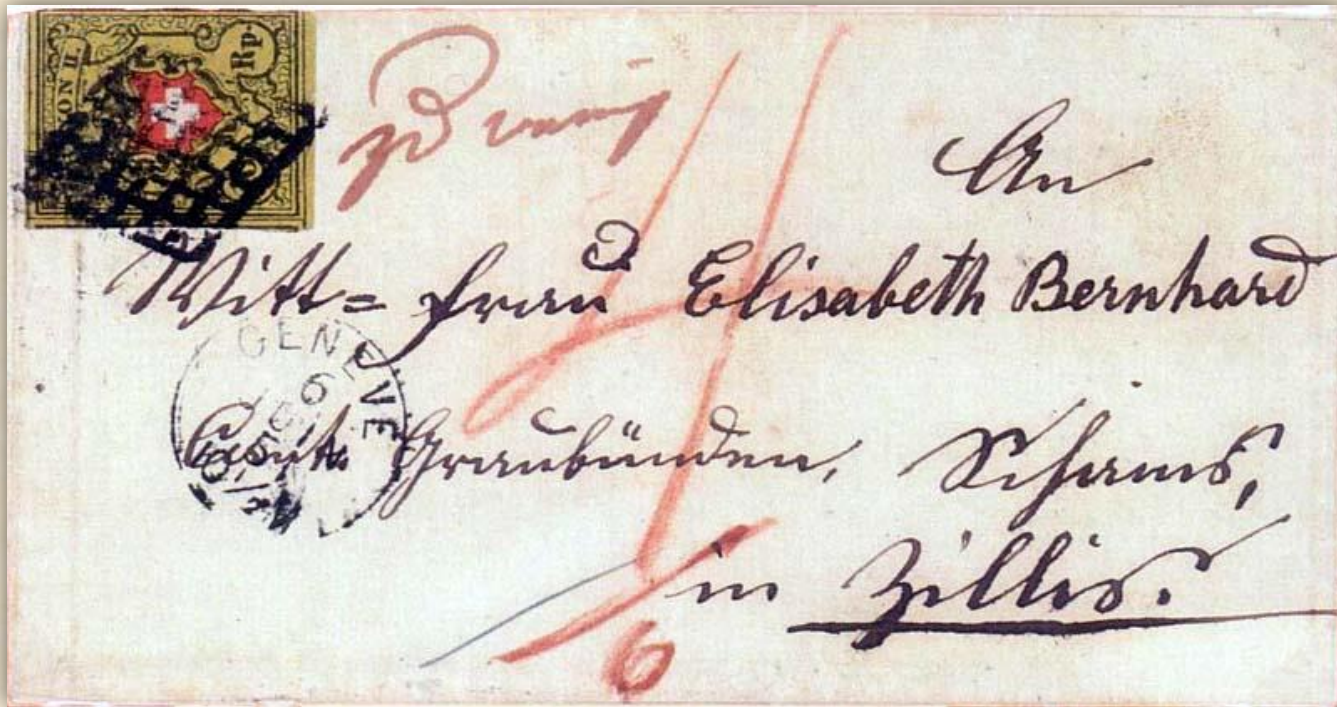 ON II.
Rp.
An
Witt= frau Elisabeth Bernhard
GENEVE
6
Cant. Graubünden, Schams,
in Zillis.
6